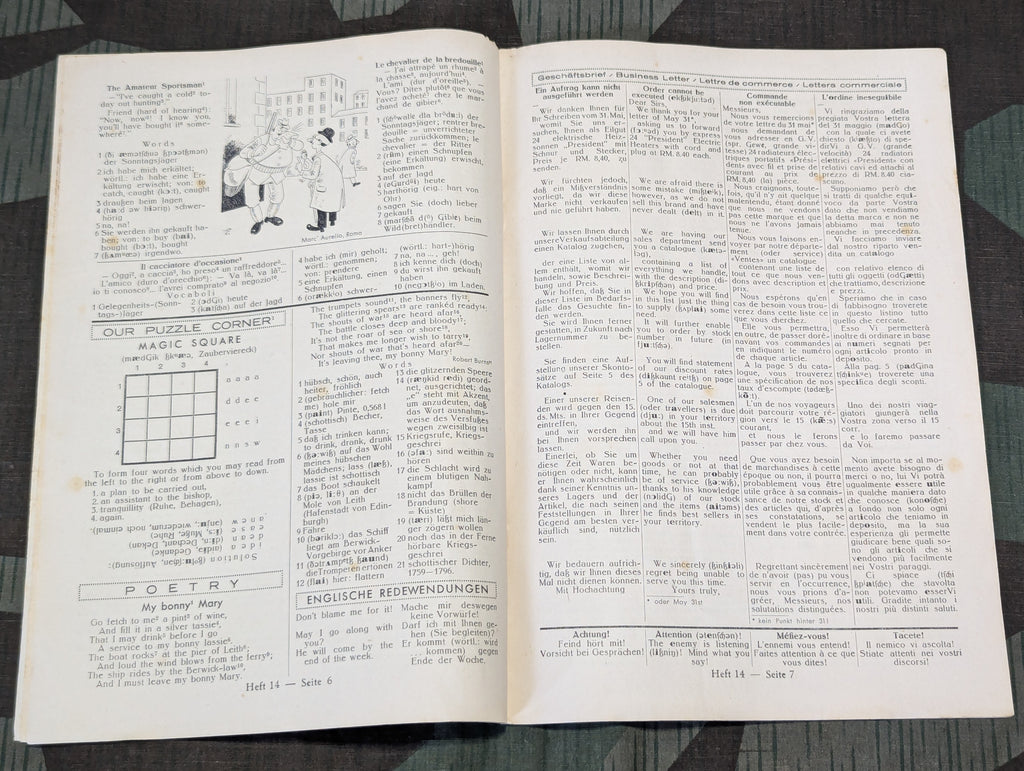 The Amateur Sportsman¹
— "I've caught a cold² to-
day out hunting³."
Friend (hard of hearing⁴):
"Now, now⁵! I know you,
you'll have bought it⁶ some-
where⁷."
Words
der Sonntagsjäger
2 ich habe mich erkältet;
wörtl.: ich habe eine Er-
kältung erwischt; von: to
3 draußen beim Jagen
hörig
5 na, na!
6 Sie werden ihn gekauft ha-
bought
Marc' Aurelio, Roma
Le chevalier de la bredouille¹
— J'ai attrapé un rhume² à
la chasse³, aujourd'hui⁴.
L'ami (dur d'oreille⁵). —
Vous? Dites plutôt⁶ que vous
l'avez acheté⁷ chez le mar-
chand de gibier⁸.
Sonntagsjäger; rentrer bre-
douille = unverrichteter
Sache zurückkommen; le
chevalier = der Ritter
(eine Erkältung) erwischt,
bekommen
3 auf der Jagd
5 harthörig (eig.: hart von
Ohr)
6 sagen Sie (doch) lieber
7 gekauft
Wild(bret)händler.
Il cacciatore d'occasione¹
— Oggi², a caccia³, ho preso⁴ un raffreddore⁵.
L'amico (duro d'orecchio⁶): — Va là, va là⁷...
io ti conosco⁸... l'avrai comprato⁹ al negozio¹⁰.
Vocaboli
1 Gelegenheits-(Sonn-
tags-)jäger
4 habe ich (mir) geholt;
wörtl.: genommen;
von: prendere
5 eine Erkältung, einen
Schnupfen
(wörtl.: hart-)hörig
7 na, na ..., geh!
8 ich kenne dich (doch)
9 du wirst ihn gekauft
haben
OUR PUZZLE CORNER¹
MAGIC SQUARE
1 2 3 4
1
2
3
4
a a a a
d d e e
e e e i
n n s w
To form four words which you may read from
the left to the right or from above to down.
1. a plan to be carried out,
2. an assistant to the bishop,
3. tranquillity (Ruhe, Behagen),
4. again.
POETRY
My bonny¹ Mary
Go fetch to me² a pint³ of wine,
And fill it in a silver tassie⁴,
That I may drink⁵ before I go
A service to my bonny lassie⁶.
The boat rocks⁷ at the pier of Leith⁸;
And loud the wind blows from the ferry⁹;
The ship rides by the Berwick-law¹⁰,
And I must leave my bonny Mary.
The trumpets sound¹¹, the banners fly¹²,
The glittering spears¹³ are rankéd ready¹⁴.
The shouts of war¹⁵ are heard afar¹⁶,
The battle closes deep and bloody¹⁷;
It's not the roar of sea or shore¹⁸,
That makes me longer wish to tarry¹⁹,
Nor shouts of war that's heard afar²⁰ —
It's leaving thee, my bonny Mary!
Words
1 hübsch, schön, auch
heiter, fröhlich
me) hole mir
4 (schottisch) Becher,
Tasse
5 daß ich trinken kann;
to drink, drank, drunk
meines hübschen
lassie ist schottisch
7 das Boot schaukelt
Mole von Leith
(Hafenstadt von Edin-
burgh)
9 Fähre
liegt am Berwick-
Vorgebirge vor Anker
die Trompeten ertönen
13 die glitzernden Speere
net, ausgerichtet; das
„e" steht mit Akzent,
um anzudeuten, daß
das Wort ausnahms-
weise des Versfußes
wegen zweisilbig ist
15 Kriegsrufe, Kriegs-
geschrei
hören
17 die Schlacht wird zu
einem blutigen Nah-
kampf
18 nicht das Brüllen der
Brandung (shore
= Küste)
ger zögern wollen
20 noch das in der Ferne
hörbare Kriegs-
geschrei
21 schottischer Dichter,
1759—1796.
ENGLISCHE REDEWENDUNGEN
Don't blame me for it! Mache mir deswegen
keine Vorwürfe!
May I go along with you? Darf ich mit Ihnen ge-
hen (Sie begleiten)?
He will come by the end of the week. Er kommt (wörtl.: wird
... kommen) gegen
Ende der Woche.
Heft 14 — Seite 6
Geschäftsbrief / Business Letter / Lettre de commerce / Lettera commerciale
Ein Auftrag kann nicht
ausgeführt werden
—
Wir danken Ihnen für
Ihr Schreiben vom 31. Mai,
womit Sie uns er-
suchen, Ihnen als Eilgut
24 elektrische Heiz-
sonnen „President" mit
Schnur und Stecker,
Preis je RM. 8,40, zu
senden.
Wir fürchten jedoch,
daß ein Mißverständnis
vorliegt, da wir diese
Marke nicht verkaufen
und nie geführt haben.
Wir lassen Ihnen durch
unsere Verkaufsabteilung
einen Katalog zugehen,
der eine Liste von al-
lem enthält, womit wir
handeln, sowie Beschrei-
bung und Preis.
Wir hoffen, daß Sie in
dieser Liste im Bedarfs-
falle das Gesuchte fin-
den werden.
Sie wird Ihnen ferner
gestatten, in Zukunft nach
Lagernummer zu be-
stellen.
Sie finden eine Auf-
stellung unserer Skonto-
sätze auf Seite 5 des
Katalogs.
Einer unserer Reisen-
den wird gegen den 15.
ds. Mts. in Ihrer Gegend
eintreffen,
und wir werden ihn
bei Ihnen vorsprechen
lassen.
Einerlei, ob Sie um
diese Zeit Waren be-
nötigen oder nicht, kann
er Ihnen wahrscheinlich
dank seiner Kenntnis
unseres Lagers und der
Artikel, die nach seinen
Feststellungen in Ihrer
Gegend am besten ver-
käuflich sind, nützlich
sein.
Wir bedauern aufrich-
tig, daß wir Ihnen dieses
Mal nicht dienen können.
Mit Hochachtung
Order cannot be
Dear Sirs,
We thank you for your
letter of May 31*,
asking us to forward
24 "President" Electric
Heaters with cord and
plug at RM. 8.40 each.
We are afraid there is
however, as we do not
sell this brand and have
We are having our
sales department send
containing a list of
everything we handle,
with the description and
price.
We hope you will find
in this list just the thing
need.
It will further enable
you to order by stock
You will find statement
of our discount rates
5 of the catalogue.
One of our salesmen
about the 15th inst.
and we will have him
call upon you.
Whether you need
goods or not at that
time, he can probably
thanks to his knowledge
he finds best sellers in
your territory.
regret being unable to
serve you this time.
Yours truly,
* oder May 31st
Commande
non exécutable
Messieurs,
Nous vous remercions
de votre lettre du 31 mai*
nous demandant de
vous adresser en G.V.
(spr. Gewe, grande vi-
tesse) 24 radiateurs élec-
triques portatifs «Prési-
dent» avec fil et prise de
courant au prix de
RM. 8,40 (la) pièce.
Nous craignons, toute-
fois, qu'il n'y ait quelque
malentendu, étant donné
que nous ne vendons
pas cette marque et que
nous ne l'avons jamais
tenue.
Nous vous faisons en-
voyer par notre départe-
ment (oder service)
«Ventes» un catalogue
contenant une liste de
tout ce que nous ven-
dons avec description et
prix.
Nous espérons qu'en
cas de besoin vous trou-
verez dans cette liste ce
que vous cherchez.
Elle vous permettra,
en outre, de passer doré-
navant vos commandes
en indiquant le numéro
de chaque article.
A la page 5 du cata-
logue, vous trouverez
une spécification de nos
L'un de nos voyageurs
doit parcourir votre ré-
courant,
et nous le ferons
passer par chez vous.
Que vous ayez besoin
de marchandises à cette
époque ou non, il pourra
probablement vous être
utile grâce à sa connais-
sance de notre stock et
des articles qui, d'après
ses constatations, se
vendent le plus facile-
ment dans votre con-
trée.
Regrettant sincèrement
de n'avoir (pas) pu vous
servir en l'occurrence,
nous vous prions d'a-
gréer, Messieurs, nos
salutations distinguées.
* kein Punkt hinter 31!
L'ordine ineseguibile
—
Vi ringraziamo della
pregiata Vostra lettera
con la quale ci avete
velocità) 24 radiatori
elettrici «President» con
relativi cavi ed attacchi al
prezzo di RM. 8.40 cia-
scuno.
Supponiamo però che
si tratti di qualche equi-
voco da parte Vostra
dato che non vendiamo
la detta marca e non ne
abbiamo mai tenuto
neanche in precedenza.
Vi facciamo inviare
dal nostro riparto ven-
dita un catalogo
con relativo elenco di
che trattiamo, descrizione
e prezzi.
Speriamo che in caso
di fabbisogno troverete
in questo listino tutto
quello che cercate.
Esso Vi permetterà
inoltre di ordinare in base
ai numeri segnati per
ogni articolo pronto in
deposito.
specifica degli sconti.
Uno dei nostri viag-
giatori giungerà nella
Vostra zona verso il 15
corr.
e lo faremo passare
da Voi.
Non importa se al mo-
mento avete bisogno di
merci o no, lui Vi potrà
ugualmente essere utile
in qualche maniera dato
a fondo non solo ogni
articolo che teniamo in
deposito, ma la sua
esperienza gli permette
giudicare bene quali so-
no gli articoli che si
vendono più facilmente
nei Vostri paraggi.
non potevamo esserVi
utili. Gradite intanto i
nostri più distinti saluti.
Achtung!
Feind hört mit!
Vorsicht bei Gesprächen!
The enemy is listening
say!
Méfiez-vous!
L'ennemi vous entend!
Faites attention à ce que
vous dites!
Tacete!
Il nemico vi ascolta!
Stiate attenti nei vostri
discorsi!
Heft 14 — Seite 7